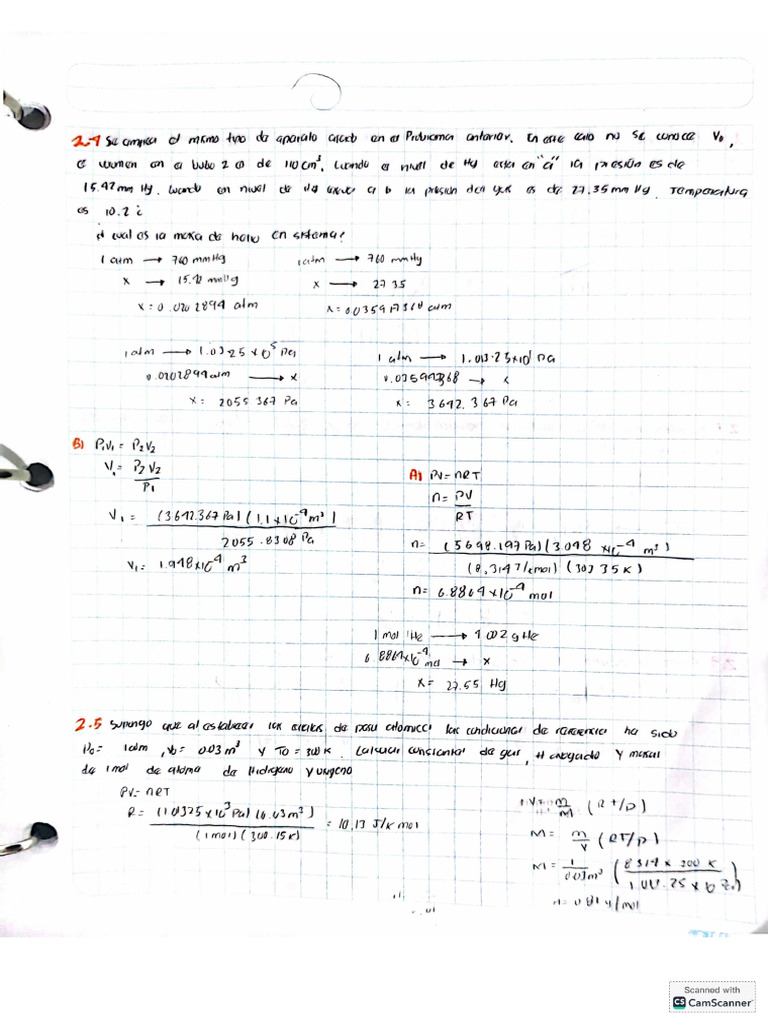 2.4 Se emplea el mismo tipo de aparato citado en el Problema anterior. En este caso no se conoce V0,
el volumen en el bulbo 2 es de 110 cm³, cuando el nivel de Hg está en "a" la presión es de
15.42 mm Hg. cuando en nivel de Hg a b la presión del gas es de 27.35 mm Hg. Temperatura
es 10.2
cual es la masa de helio en sistema?
1 atm → 760 mmHg
x → mmHg
x = 0.0202894 atm
1 atm → 760 mmHg
x → 27.35
x = atm
1 atm → Pa
0.0202894 atm → x
x: 2055.367 Pa
1 atm → Pa
→ x
x: 3642.367 Pa
B) P1V1 = P2V2
V1 = P2V2 / P1
V1 = (3642.367 Pa)(1.1x10⁻⁴ m³) / 2055.8308 Pa
V1 = 1.948x10⁻⁴ m³
A) PV = nRT
n = PV / RT
n = (5698.197 Pa)(3.048 x10⁻⁴ m³) / (8.314 J/kmol)(303.35 K)
n = 6.8864x10⁻⁴ mol
1 mol He → 4.002 g He
6.8864x10⁻⁴ mol → x
x = 27.55 Hg
2.5 Suponga que al establecer las escalas de peso atomico las condiciones de referencia ha sido
P0 = 1 atm, V0 = 0.03 m³ y T0 = 300 K. Calcular constante de gas, # avogadro y masa
de 1 mol de atomo de Hidrogeno y oxigeno
PV = nRT
R = ( Pa)(0.03 m³) / (1 mol)(300.15 K) = 10.13 J/K mol
PV = m/M (RT/P)
M = m/V (RT/P)
M = 1 / 0.03 m³ (8.314 x 300 K / )
Scanned with
CS CamScanner